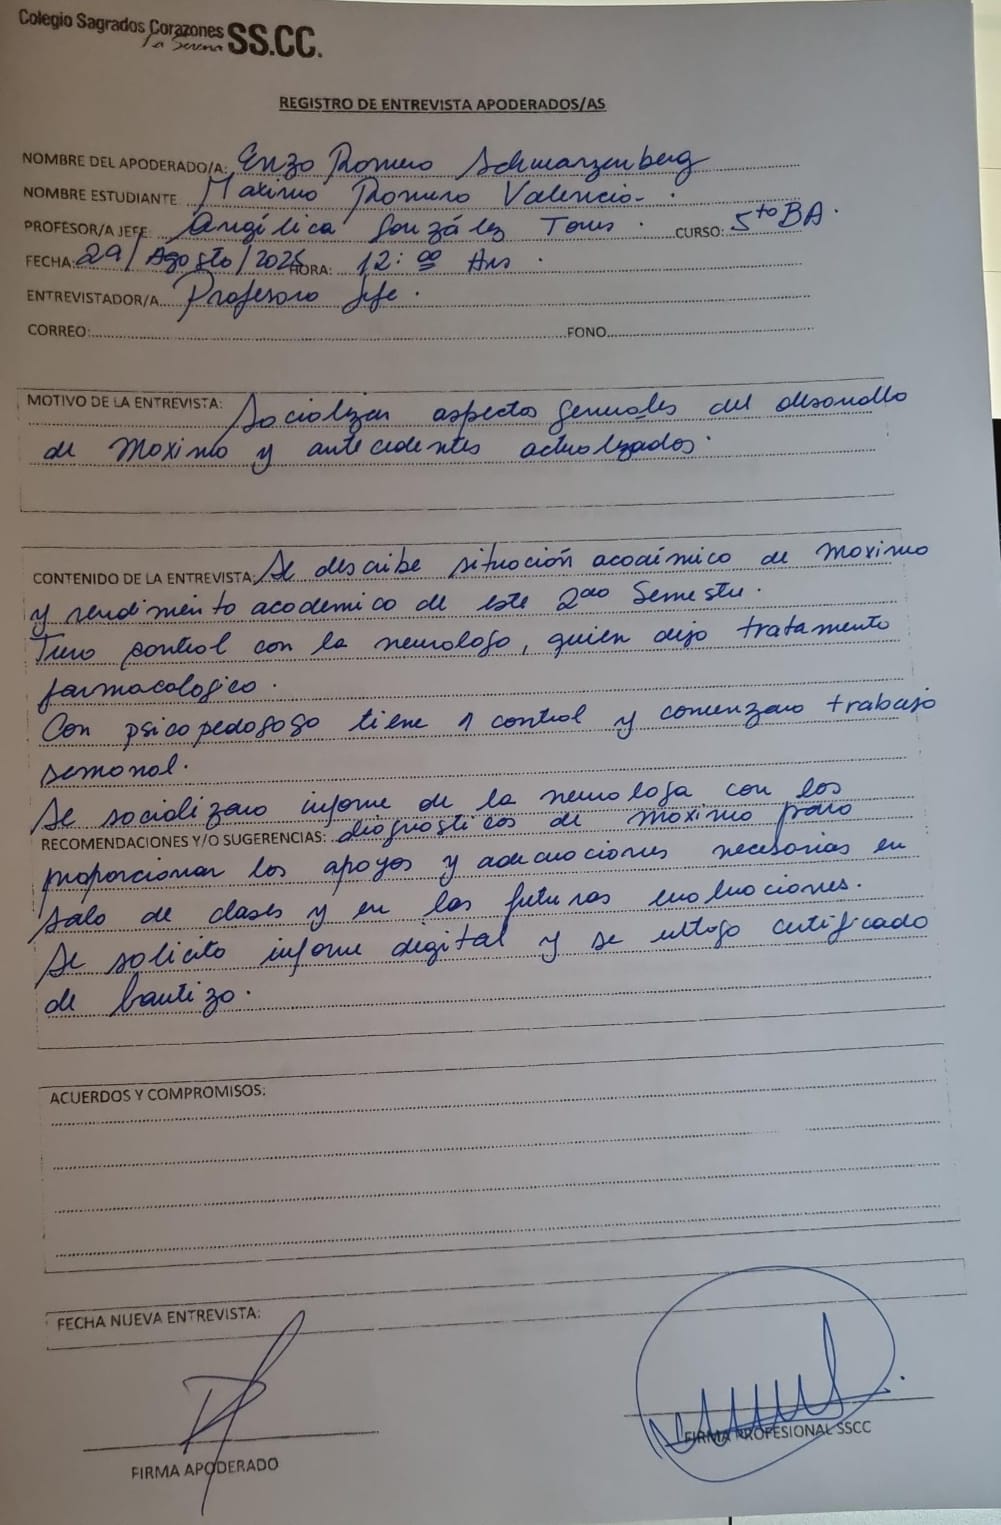 Colegio Sagrados Corazones SS.CC.
La Serena
REGISTRO DE ENTREVISTA APODERADOS/AS
NOMBRE DEL APODERADO/A: Enzo Romero Schwarzenberg
NOMBRE ESTUDIANTE Maximo Romero Valencia.
PROFESOR/A JEFE: Angélica González Torres. CURSO: 5to BA.
FECHA: 29/Agosto/2025 HORA: 12:00 Hrs.
ENTREVISTADOR/A Profesora Jefe.
CORREO: FONO
MOTIVO DE LA ENTREVISTA: Socializar aspectos generales del desarrollo
de Maximo y antecedentes actualizados.
CONTENIDO DE LA ENTREVISTA: Se describe situación académica de Maximo
y rendimiento academico de este 2do Semestre.
Tuvo control con la neurologa, quien dijo tratamento
farmacologico.
Con psicopedagoga tiene 1 control y comenzara trabajo
semanal.
Se socializara informe de la neurologa con los
RECOMENDACIONES Y/O SUGERENCIAS: diagnosticos de Maximo para
proporcionar los apoyos y adecuaciones necesarias en
sala de clases y en las futuras evaluaciones.
Se solicita informe digital y se entrega certificado
de bautizo.
ACUERDOS Y COMPROMISOS:
FECHA NUEVA ENTREVISTA:
FIRMA APODERADO
FIRMA PROFESIONAL SSCC